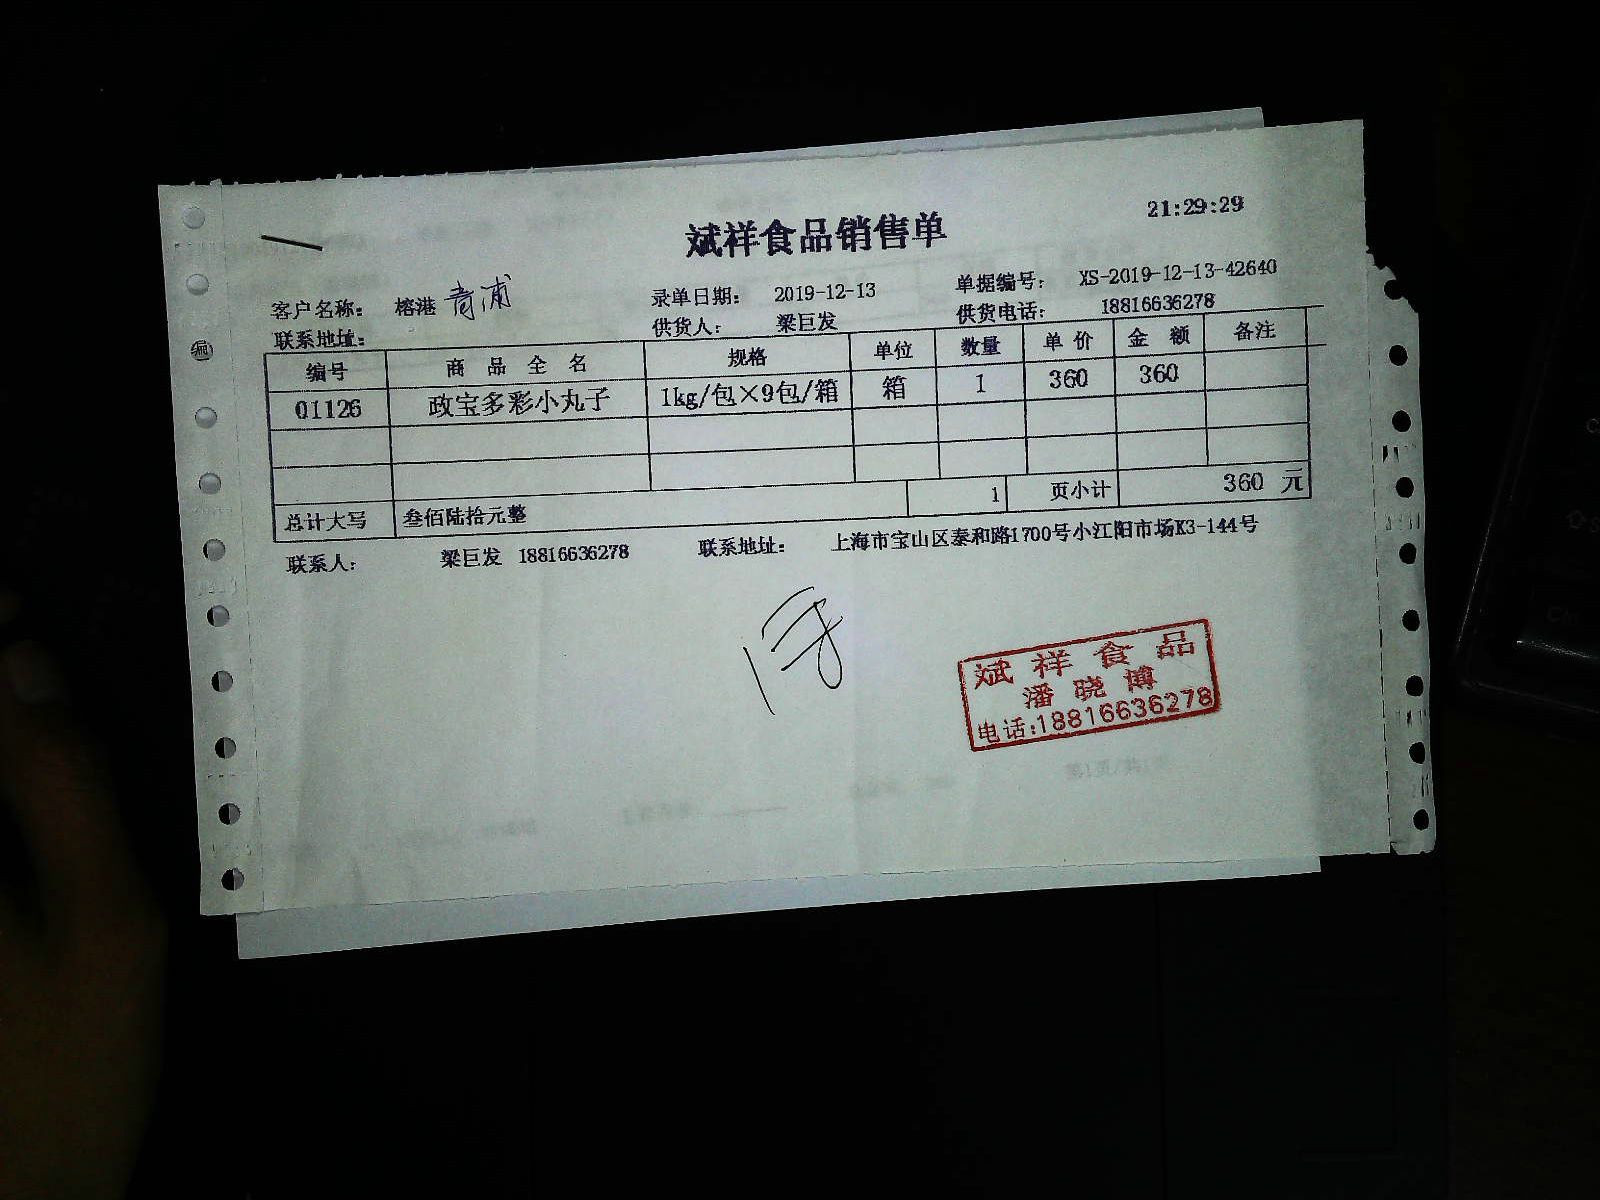 21:29:29
斌祥食品销售单
客户名称： 榕港 青浦 录单日期： 2019-12-13 单据编号： XS-2019-12-13-42640
联系地址： 供货人： 梁巨发 供货电话： 18816636278
编号 商 品 全 名 规格 单位 数量 单 价 金 额 备注
01126 政宝多彩小丸子 1kg/包×9包/箱 箱 1 360 360
总计大写 叁佰陆拾元整 1 页小计 360 元
联系人： 梁巨发 18816636278 联系地址： 上海市宝山区泰和路1700号小江阳市场K3-144号
斌祥食品
潘晓博
电话:18816636278